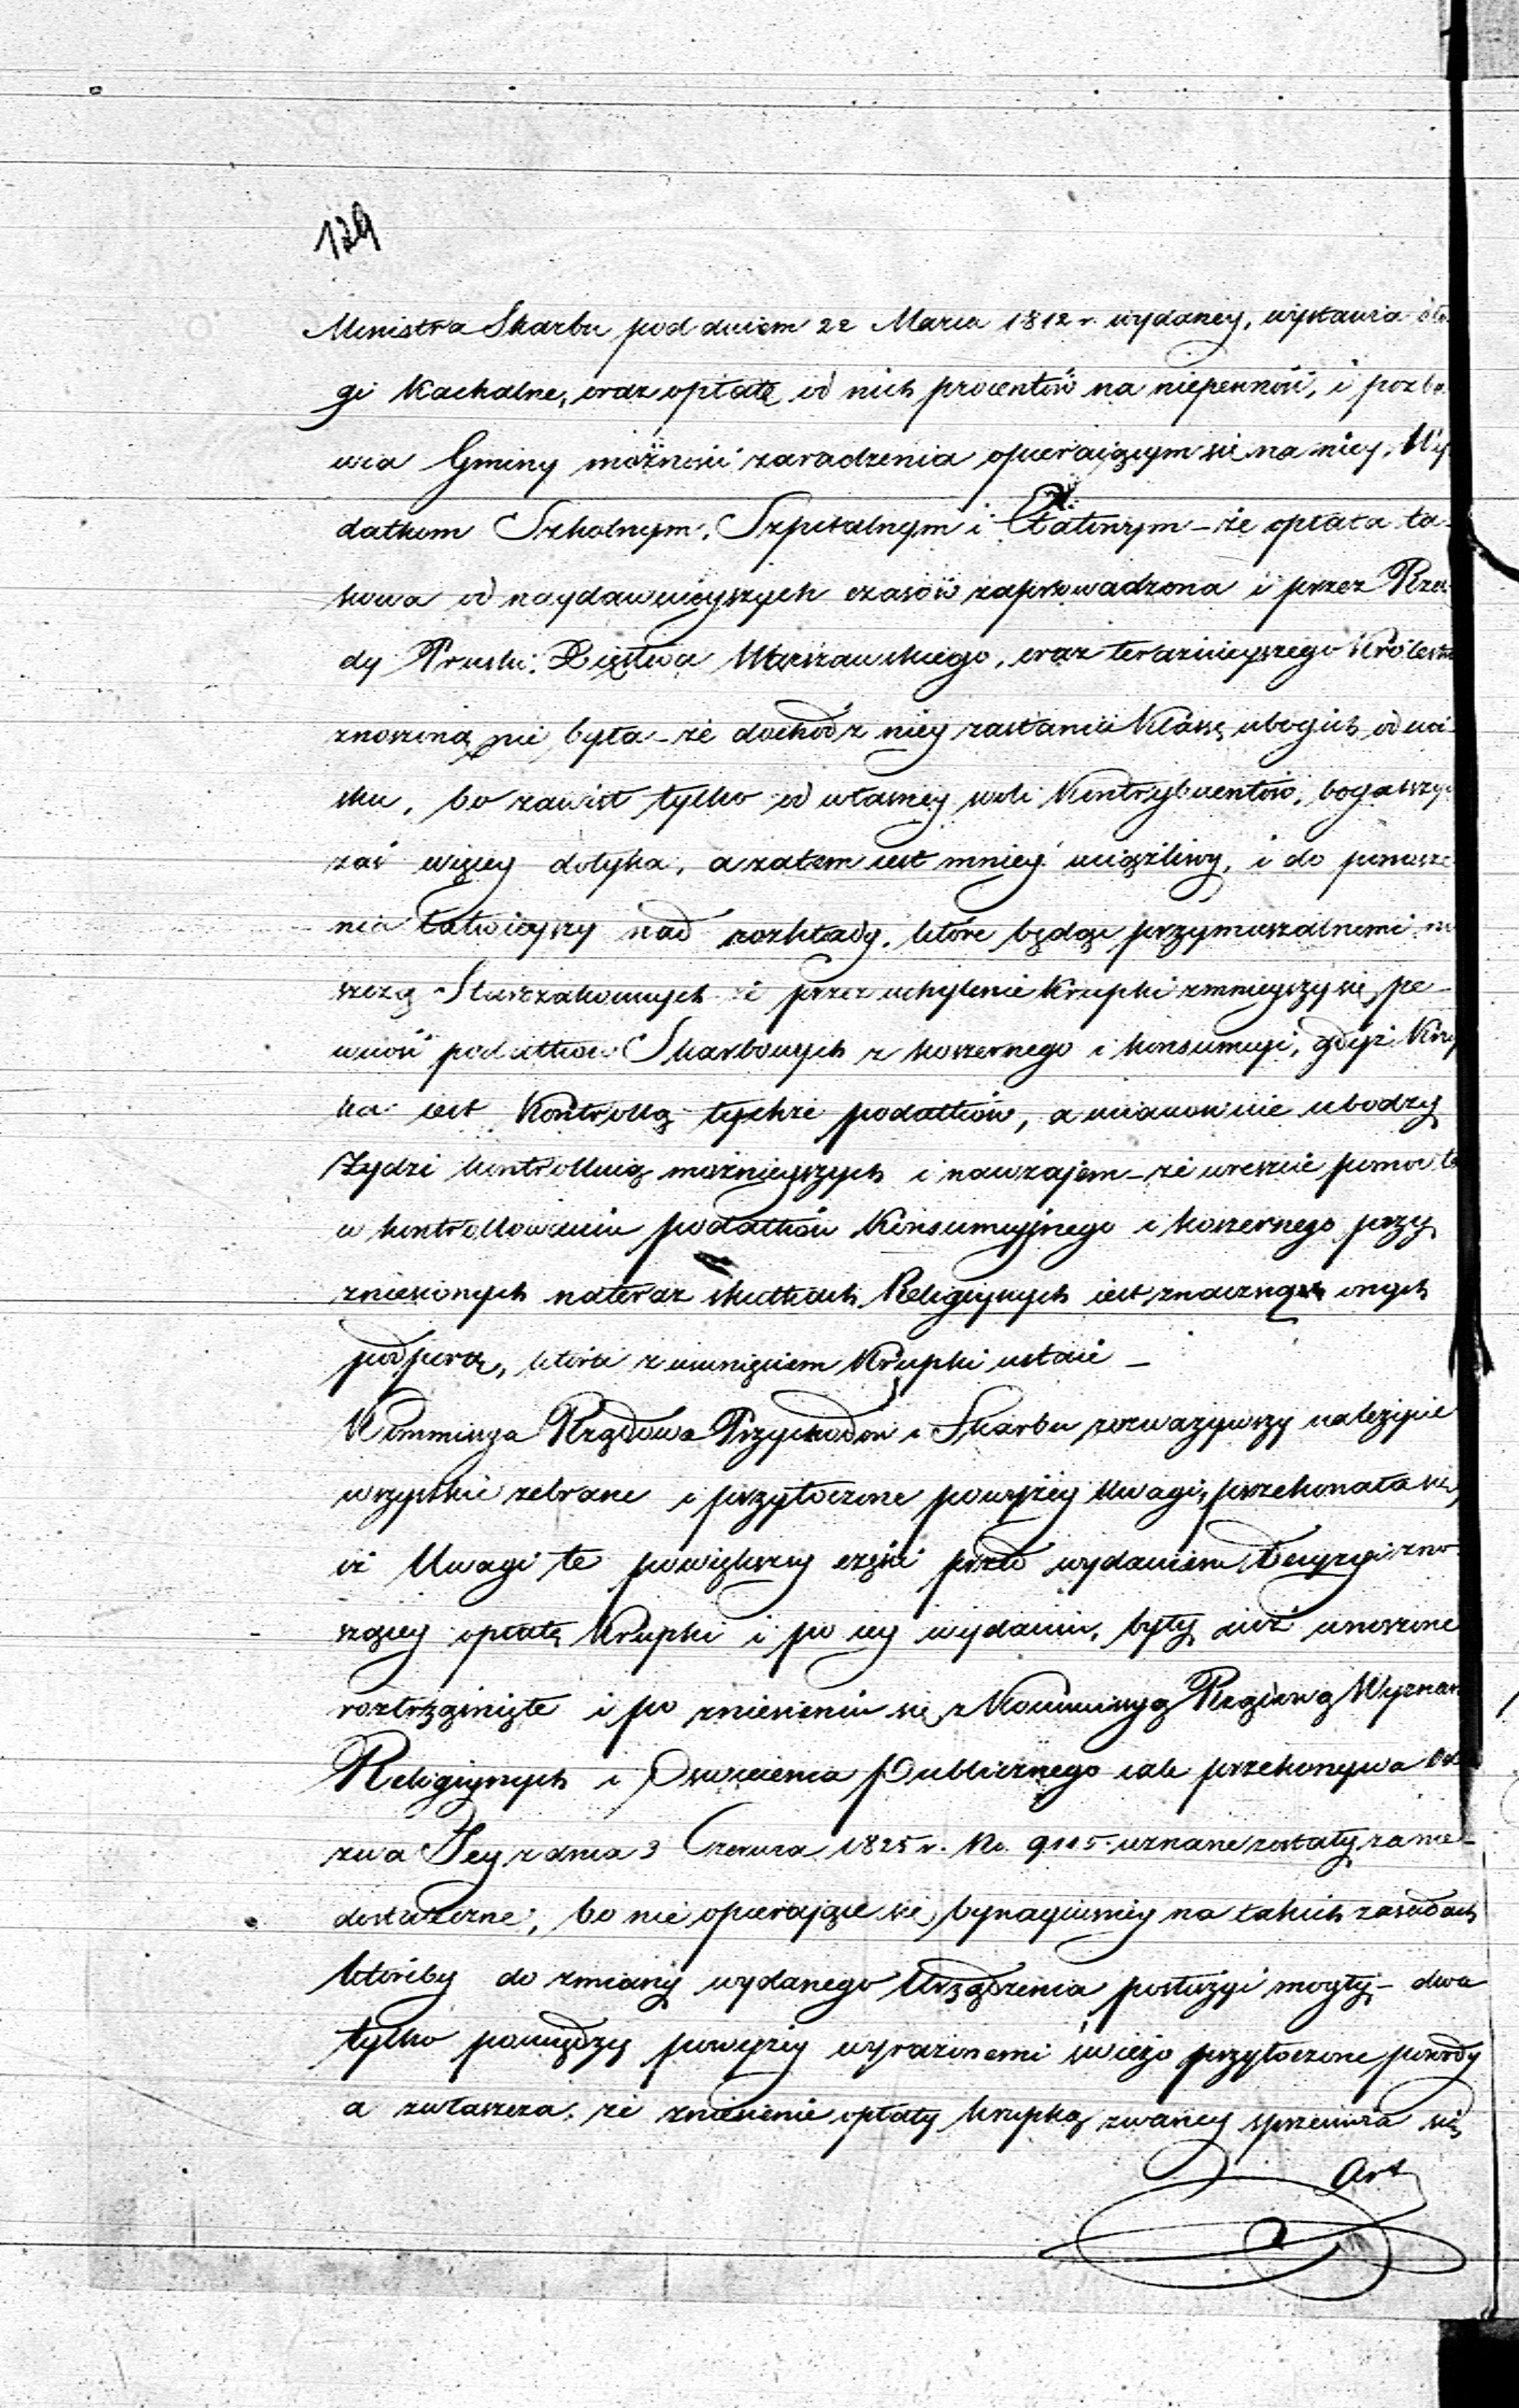 129
Ministra Skarbu pod dniem 22 Marca 1812 r. wydaney, wystawia
gi Kachalne, oraz opłatę od nich procentów na niepewność, i pozba
wia Gminy możności zaradzenia opieraiącym się na niey, Wy
datkom Szkolnym, Szpitalnym i Etatowym – że opłata ta-
kowa od naydawnieyszych czasów zaprowadzona i przez Rzą
dy Pruski, Xięstwa Warszawskiego, oraz teraźnieyszego Królestw
znoszoną nie była – że dochód z niey zasłania Klassę ubogich od uci-
sku, bo zawisł tylko od własney woli Kontrybuentów, bogatszy
zaś więcey dotyka, a zatem iest mniey uciążliwy, i do ponosze
nia łatwieyszy nad rozkłady, które będąc przymuszalnemi
Starozakonnych że przez uchylenie Krupki zmnieyszy się pe-
wność podatków Skarbowych z koszernego i konsumcyi, gdyż Krup
ka iest Kontrollą tychże podatków, a mianowicie ubodzy
Żydzi kontrolluią możnieyszych i nawzajem – że wreszcie pomoc ta
w kontrollowaniu podatków Konsumcyjnego i koszernego przy
zniesionych na teraz skutkach Religiynych iest znaczną onych
podporą, która z usunięciem Krupki ustaie –
Kommissya Rządowa Przychodów i Skarbu rozważywszy należycie
wszystkie zebrane i przytoczone powyżey Uwagi, przekonała się,
iż Uwagi te powiększey części przed wydaniem Decyzyi zno-
szącey opłatę Krupki i po iey wydaniu, były już wnoszone
roztrząśnięte i po zniesieniu się z Kommissyą Rządową Wyznań
Religiynych i Oświecenia Publicznego iak przekonywa Ode
zwa Jey z dnia 3 Czerwca 1825 r. No. 9105. uznane zostały za nie-
dostateczne, bo nie opierające się bynaymniey na takich zasadach
któreby do zmiany wydanego Urządzenia posłużyć mogły – dwa
tylko pomiędzy powyżey wyrażonemi świeżo przytoczone powody
a zwłaszcza, że zniesienie opłaty krupką zwaney sprzeciwia się
Art